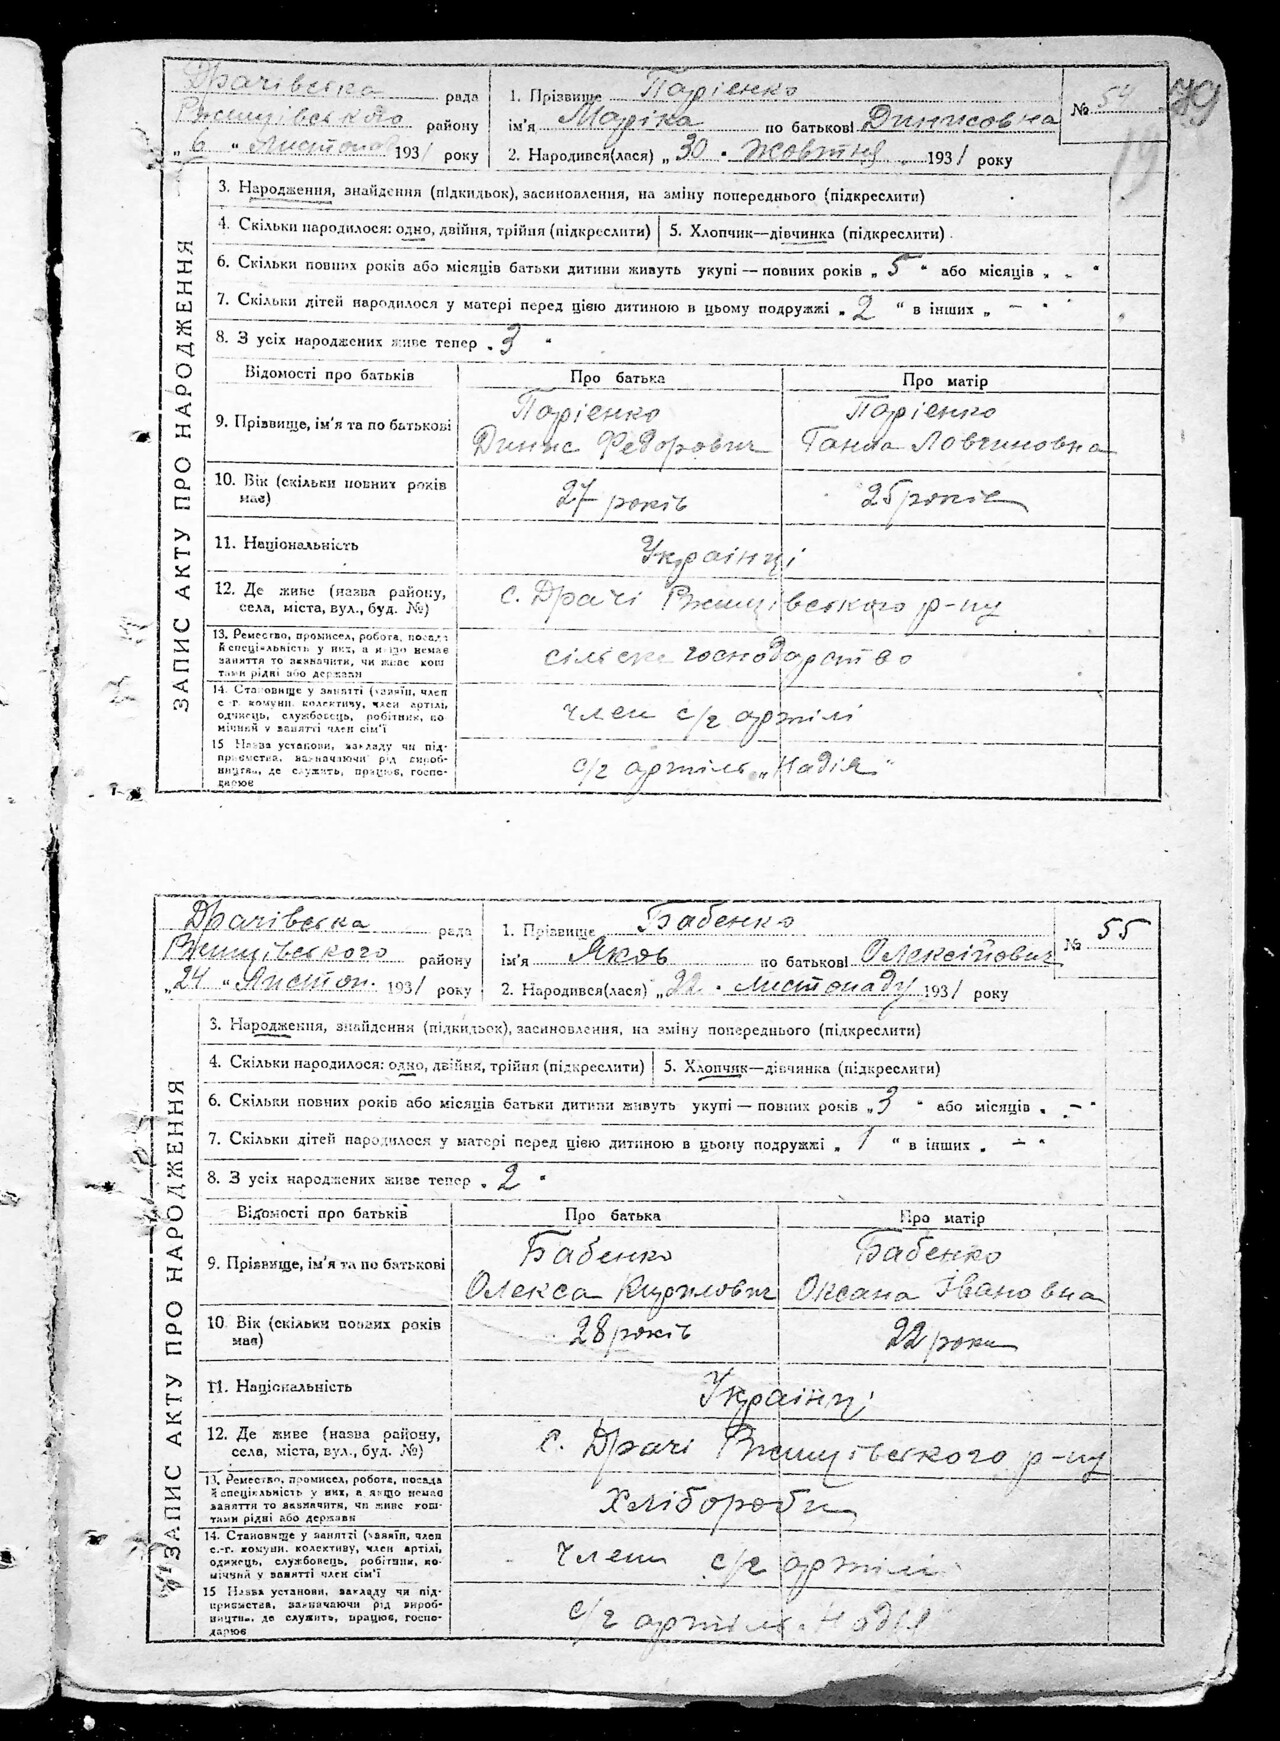 Драчівська рада
Ржищівського району
„ 6 " Листопад 1931 року
1. Прізвище Парієнко
ім'я Маріка по батькові Динисовна
2. Народився(лася) „ 30 " жовтня 1931 року
№ 54
79
19
ЗАПИС АКТУ ПРО НАРОДЖЕННЯ
3. Народження, знайдення (підкидьок), засиновлення, на зміну попереднього (підкреслити)
4. Скільки народилося: одно, двійня, трійня (підкреслити) 5. Хлопчик—дівчинка (підкреслити)
6. Скільки повних років або місяців батьки дитини живуть укупі — повних років „ 5 " або місяців „ - "
7. Скільки дітей народилося у матері перед цією дитиною в цьому подружжі „ 2 " в інших „ — "
8. З усіх народжених живе тепер „ 3 "
Відомості про батьків Про батька Про матір
9. Прізвище, ім'я та по батькові
Парієнко Парієнко
Динис Федорович Ганна
10. Вік (скільки повних років має) 27 років 25 років
11. Національність Українці
12. Де живе (назва району, села, міста, вул., буд. №) с. Драчі Ржищівського р-ну
13. Ремество, промисел, робота, посада
й спеціяльність у них, а якщо немає
заняття то зазначити, чи живе кош
тами рідні або держави
сільське господарство
14. Становище у занятті (хазяїн, член
с.-г. комуни, колективу, член артілі,
одинець, службовець, робітник, по
мічний у занятті член сім'ї
член с/г артілі
15 Назва установи, закладу чи під-
приємства, зазначаючи рід вироб-
ництва, де служить, працює, госпо-
дарює
с/г артіль „Надія"
Драчівська рада
Ржищівського району
„ 24 " Листоп. 1931 року
1. Прізвище Бабенко
ім'я Яков по батькові Олексійович
2. Народився(лася) „ 22 " листопаду 1931 року
№ 55
ЗАПИС АКТУ ПРО НАРОДЖЕННЯ
3. Народження, знайдення (підкидьок), засиновлення, на зміну попереднього (підкреслити)
4. Скільки народилося: одно, двійня, трійня (підкреслити) 5. Хлопчик—дівчинка (підкреслити)
6. Скільки повних років або місяців батьки дитини живуть укупі — повних років „ 3 " або місяців „ - "
7. Скільки дітей народилося у матері перед цією дитиною в цьому подружжі „ 1 " в інших „ — "
8. З усіх народжених живе тепер „ 2 "
Відомості про батьків Про батька Про матір
9. Прізвище, ім'я та по батькові
Бабенко Бабенко
Олекса Кирилович Оксана Івановна
10. Вік (скільки повних років має) 28 років 22 роки
11. Національність Українці
12. Де живе (назва району, села, міста, вул., буд. №) с. Драчі Ржищівського р-ну
13. Ремество, промисел, робота, посада
й спеціяльність у них, а якщо немає
заняття то зазначити, чи живе кош-
тами рідні або держави
Хлібороби
14. Становище у занятті (хазяїн, член
с.-г. комуни, колективу, член артілі,
одинець, службовець, робітник, по-
мічний у занятті член сім'ї
члени с/г артілі
15 Назва установи, закладу чи під-
приємства, зазначаючи рід вироб-
ництва, де служить, працює, госпо-
дарює
с/г артіль „Надія"